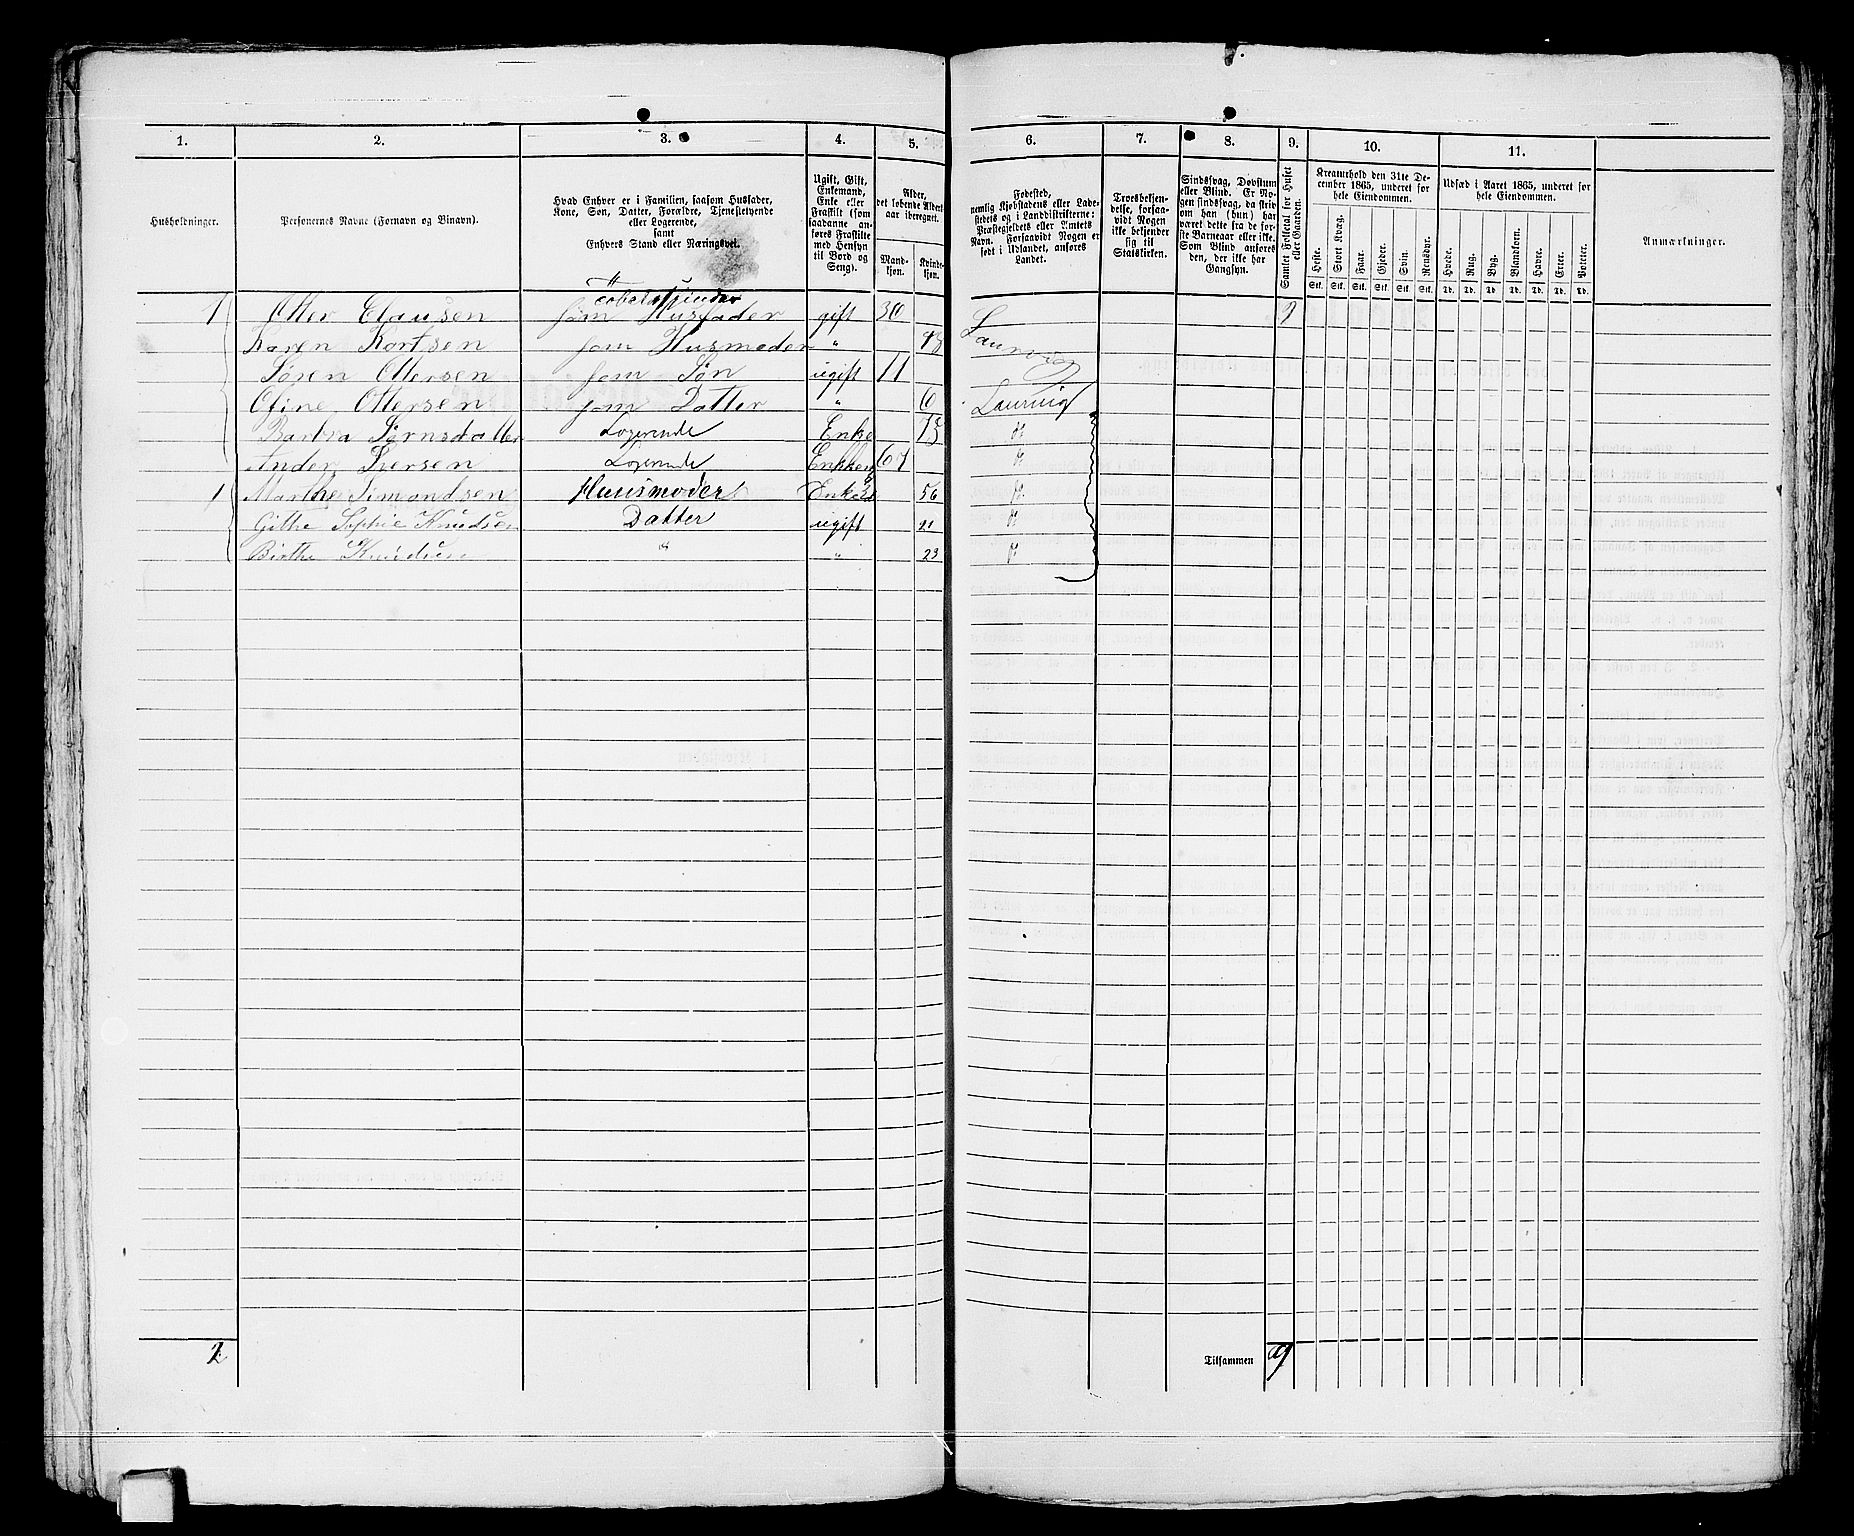 1. 2. 3. 4. 5. 6. 7. 8. 9. 10. 11.
Husholdninger.
Personernes Navne (Fornavn og Binavn).
Hvad Enhver er i Familien, saasom Husfader,
Kone, Søn, Datter, Forældre, Tjenestetyende
eller Logerende,
samt
Enhvers Stand eller Næringsvei.
Ugift, Gift,
Enkemand,
Enke eller
Fraskilt (som
saadanne an-
føres Fraskilte
med Hensyn
til Bord og
Seng).
Alder,
det løbende Alders-
aar iberegnet.
Mand-
kjøn.
Kvinde-
kjøn.
Fødested,
nemlig Kjøbstadens eller Lade-
stedets og i Landdistrikterne:
Præstegjeldets eller Amtets
Navn. Forsaavidt Nogen er
født i Udlandet, anføres
Landet.
Troesbekjen-
delse, forsaa-
vidt Nogen
ikke bekjender
sig til
Statskirken.
Sindssvag, Døvstum
eller Blind. Er No-
gen sindssvag, da skriv
om han (hun) har
været dette fra de før-
ste Barneaar eller ikke.
Som Blind ansøres
den, der ikke har
Gangsyn.
Samlet Folketal for Huset
eller Gaarden.
Kreaturhold den 31te De-
cember 1865, underet for
hele Eiendommen.
Heste. Stort Kvæg. Faar. Gjeder. Svin. Rensdyr.
Stk. Stk. Stk. Stk. Stk. Stk.
Udsæd i Aaret 1865, underet for
hele Eiendommen.
Hvede. Rug. Byg. Blandkorn. Havre. Erter. Poteter.
Td. Td. Td. Td. Td. Td. Td.
Anmærkninger.
1 Otter Clausen som Husfader gift 36 9
Karen Kortsen som Husmoder " Laurvig
Søren Ottersen som Søn ugift 11
Ofine Ottersen som Datter " 6 Laurvig
Barbra Sørnsdatter Logerende Enke 73 do
Anders Iversen Logerende 67 do
1 Marthe Simondsen Huusmoder Enke 56 do
Githe Sophie Knudsen Datter ugift 21 do
Birthe Knudsen " " 23 do
2 Tilsammen 9